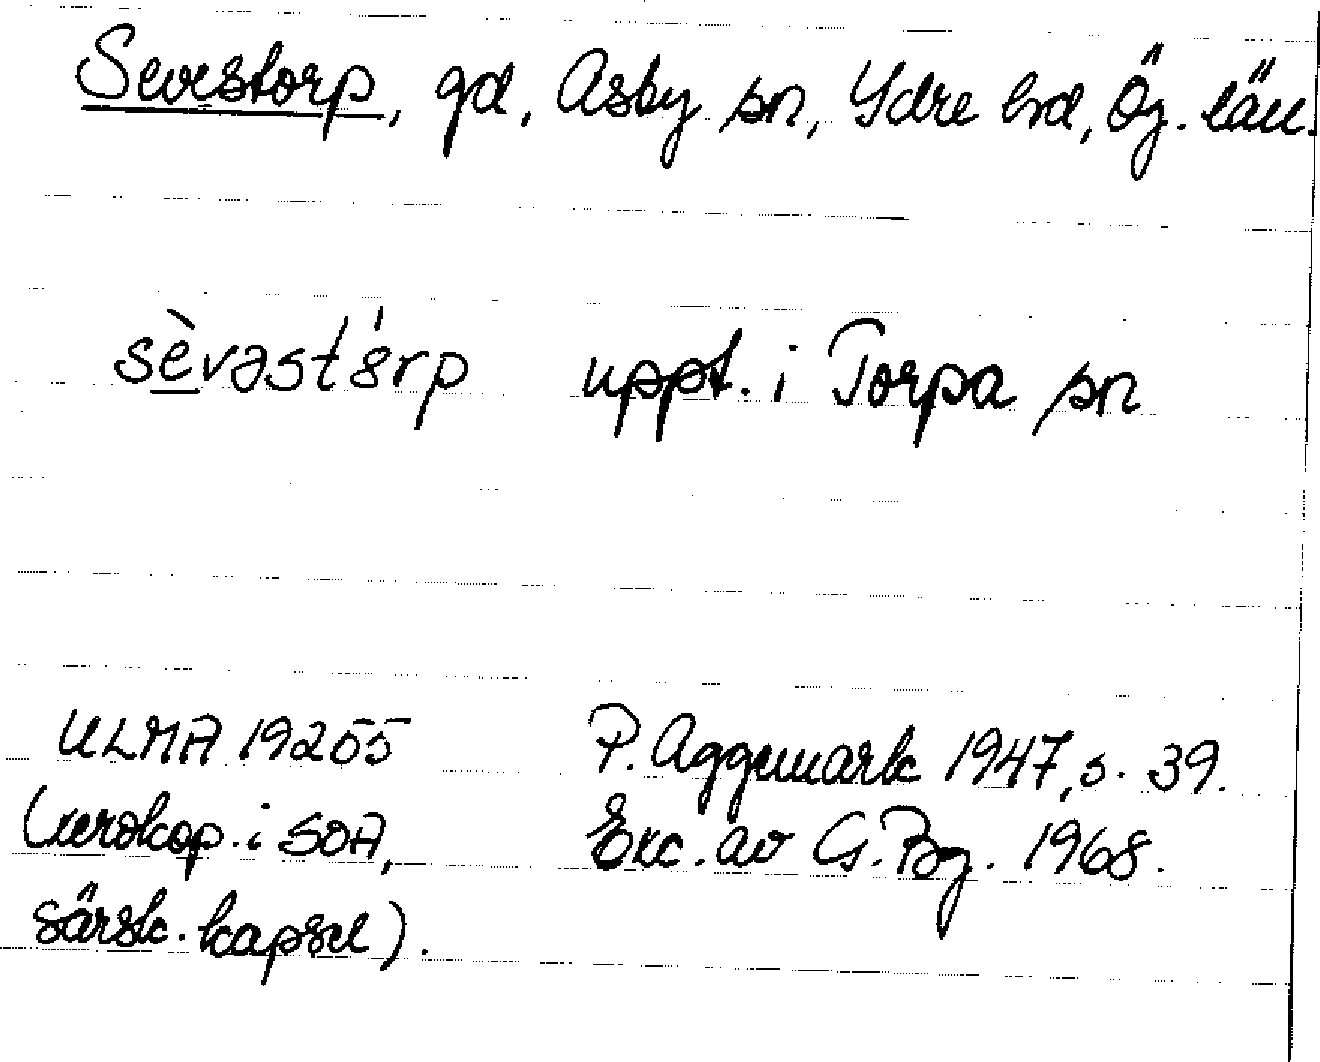 Sevestorp, gd, Asby sn, Ydre hd, Ög. län.
sèvəst'ŏrp uppt. i Torpa sn
ULMA 19255 P. Aggemark 1947, s. 39.
(xerokop. i SOA, Exc. av G. Bg. 1968.
särsk. kapsel).